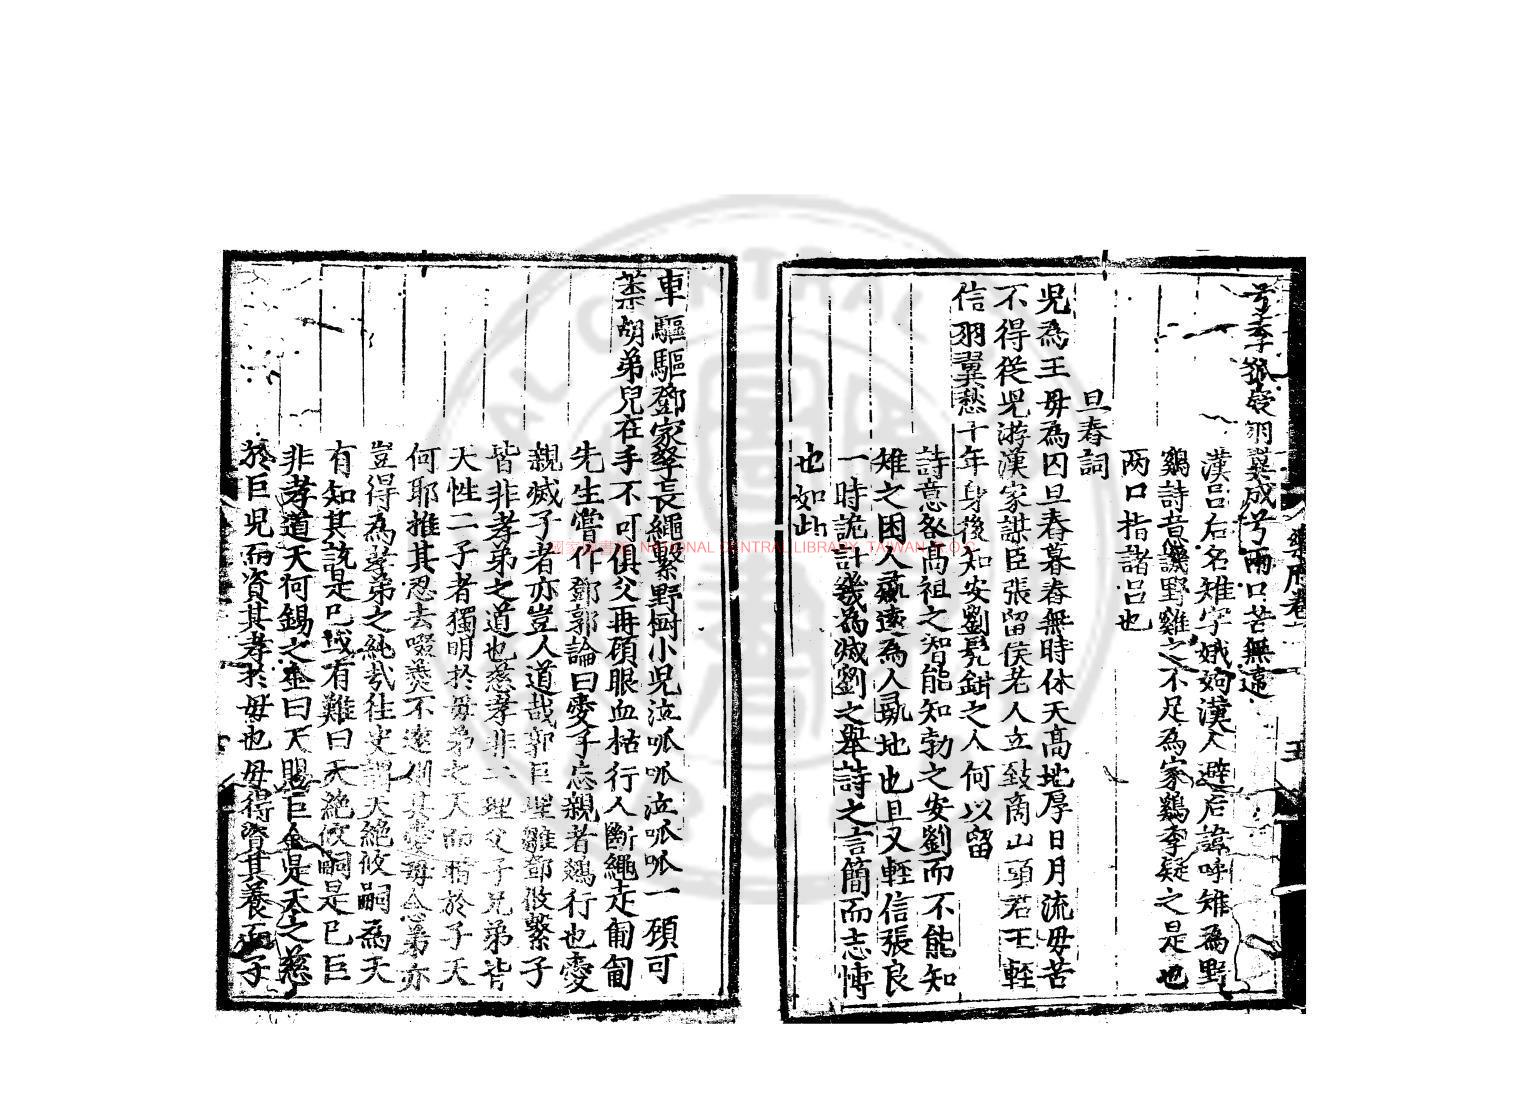 兮李狐疑羽翼成兮兩口苦無遠
漢呂后名雉字娥姁漢人避后諱呼雉為野
鷄詩意譏野雞之不足為家鷄李疑之是也
两口指諸呂也
旦春詞
児為王母為囚旦春暮舂無時休天髙地厚日月流毋苦
不得從児游漢家謀臣張留侯老人立致商山頭君王輕
信羽翼愁千年身後人知安劉髠鉗之人何以留
詩意咎髙祖之智能知勃之安劉而不能知
雉之困人疏逺為人彘地也且又輕信張良
一時詭計幾為滅劉之舉詩之言簡而志悽
也如此
樂府卷一
五
車驅驅鄧家孥長繩繫野樹小児泣呱呱泣呱呱一頋可
蔡胡弟兒在手不可俱父再頋眼血枯行人斷繩走匍匐
先生嘗作鄧郭論曰愛子忘親者鷄行也愛
親滅子者亦豈人道哉郭巨埋雛鄧攸繫子
皆非孝弟之道也慈孝非二理父子兄弟皆
天性二子者獨明於毋弟之天而暗於子天
何耶推其忍去啜羹不遠則其愛毋念弟亦
豈得為孝弟之純㢤徃史謂天絶攸嗣為天
有知其説是已或有難曰天絶攸嗣是已巨
非孝道天何錫之金曰天賜巨金是天之慈
於巨児而資其孝於毋也毋得資其養而子
國家圖書館 NATIONAL CENTRAL LIBRARY, TAIWAN R.O.C